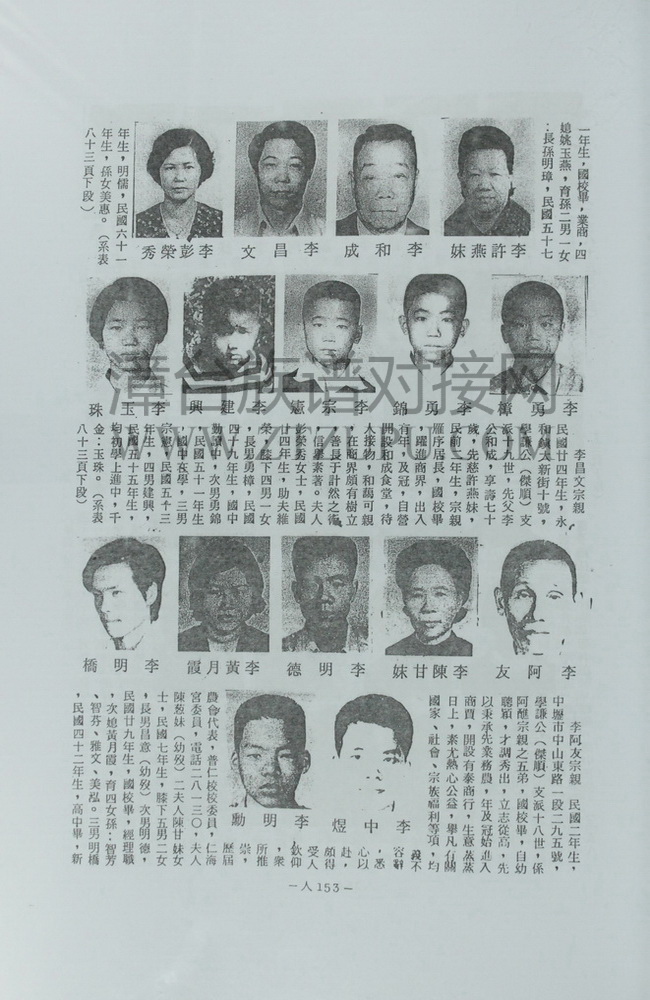 一年生，國校畢，業商，四
媳姚玉燕，育孫二男一女
：長孫明璋，民國五十七
李許燕妹
李和成
李昌文
李彭榮秀
年生，明儒，民國六十一
年生，孫女美惠。（系表
八十三頁下段）
李勇樟
李勇錦
李宗憲
李建興
李玉珠
李昌文宗親
民國廿四年生，永
和鎮大新街十號，
學謙公（傑順）支
派十九世，先父李
公和成，享壽七十
歲，先慈許燕妹，
民前二年生，宗親
雁序居長，國校畢
，躍進商界，出入
有年，及冠，自營
開設和成食堂，待
人接物，和藹可親
，在商界頗有樹立
，善長于計然之術
，信譽素著。夫人
彭榮秀女士，民國
廿四年生，助夫維
榮，膝下四男一女
，長男勇樟，民國
四十九年生，國中
勤讀中，次男勇錦
，民國五十一年生
，國中在學，三男
宗憲，民國五十三
年生，四男建興，
民國五十五年生，
均初學上進中，千
金：玉珠。（系表
八十三頁下段）
李阿友
李陳甘妹
李明德
李黃月霞
李明橋
李阿友宗親　民國二年生，
中壢市中山東路一段二九五號，
學謙公（傑順）支派十八世，係
阿醮宗親之五弟，國校畢，自幼
聰穎，才調秀出，立志從高，先
以秉承先業務農，年及冠始進入
商賈，開設有泰商行，生意蒸蒸
日上，素尤熱心公益，舉凡有關
國家、社會、宗族福利等項，均
義不
容辭
，悉
心以
赴，
頗得
受人
欽仰
，衆
所推
崇，
歷屆
李中煜
李明勳
農會代表，普仁校校委員，仁海
宮委員，電話二八一三〇，夫人
陳葱妹（幼歿）二夫人陳甘妹女
士，民國七年生，膝下五男二女
，長男昌意（幼歿）次男明德，
民國廿九年生，國校畢，經理職
，次媳黃月霞，育四女孫：智芳
、智芬、雅文、美泓。三男明橋
，民國四十二年生，高中畢，新
－人153－
漳台族谱对接网